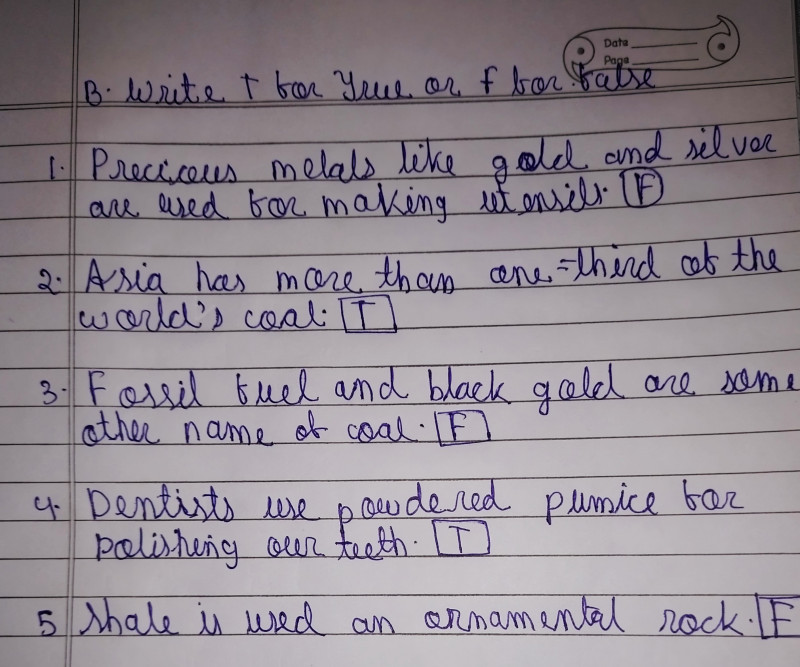 Date
Page
B. Write T for True or F for false
1. Precious metals like gold and silver
are used for making utensils. F
2. Asia has more than one-third of the
world's coal. T
3. Fossil fuel and black gold are some
other name of coal. F
4. Dentists use powdered pumice for
polishing our teeth. T
5 Shale is used an ornamental rock. F